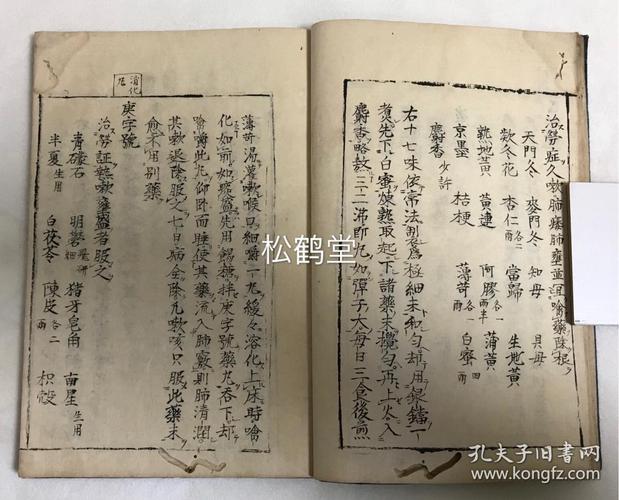 治勞症久嗽肺痿肺壅並噙藥除根
天門冬 麥門冬 知母 貝母
款冬花 杏仁各二兩 當歸 生地黃
熟地黃 黃連 阿膠兩半 蒲黃
京墨 桔梗 薄荷各一兩 白蜜四兩
麝香少許
右十七味依常法製爲極細末和勻却用銀鐺一
煮先下白蜜煉熟取起下諸藥末攪勻再上火入
麝香略熬三二沸即丸如彈子大每日三食後煎
薄荷湯漱喉口細嚼一丸緩々溶化上床時噙
化如前如痰盛先用餳糖拌庚字號藥丸吞下却
噙嚼此丸仰卧而睡使其藥流入肺竅則肺清潤
其嗽退除服之七日病全除凡嗽咳只服此藥末
愈不用別藥
消化丸
庚字號
治勞証熱嗽壅盛者服之
青礞石 明礬細研 猪牙皂角 南星生用
半夏生用 白茯苓 陳皮各二兩 枳殼
松鶴堂
孔夫子旧书网
www.kongfz.com